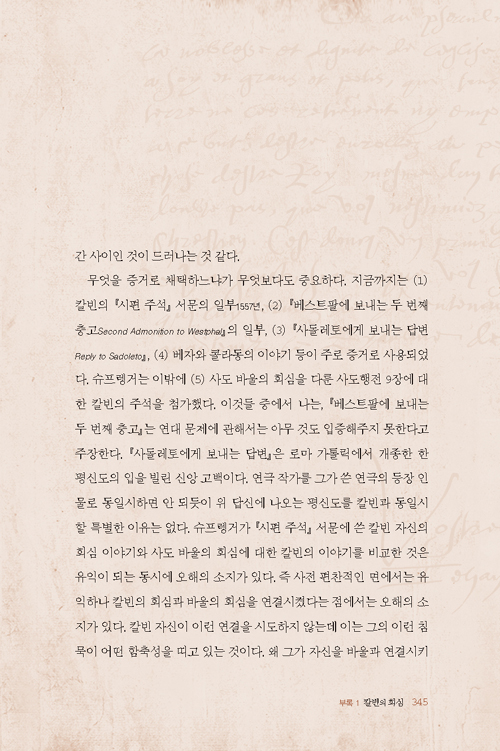 간 사이인 것이 드러나는 것 같다.
무엇을 증거로 채택하느냐가 무엇보다도 중요하다. 지금까지는 (1)
칼빈의 『시편 주석』 서문의 일부1557년, (2) 『베스트팔에 보내는 두 번째
충고Second Admonition to Westphal』의 일부, (3) 『사돌레토에게 보내는 답변
Reply to Sadoleto』, (4) 베자와 콜라동의 이야기 등이 주로 증거로 사용되었
다. 슈프렝거는 이밖에 (5) 사도 바울의 회심을 다룬 사도행전 9장에 대
한 칼빈의 주석을 첨가했다. 이것들 중에서 나는, 『베스트팔에 보내는
두 번째 충고』는 연대 문제에 관해서는 아무 것도 입증해주지 못한다고
주장한다. 『사돌레토에게 보내는 답변』은 로마 가톨릭에서 개종한 한
평신도의 입을 빌린 신앙 고백이다. 연극 작가를 그가 쓴 연극의 등장 인
물로 동일시하면 안 되듯이 위 답신에 나오는 평신도를 칼빈과 동일시
할 특별한 이유는 없다. 슈프렝거가 『시편 주석』 서문에 쓴 칼빈 자신의
회심 이야기와 사도 바울의 회심에 대한 칼빈의 이야기를 비교한 것은
유익이 되는 동시에 오해의 소지가 있다. 즉 사전 편찬적인 면에서는 유
익하나 칼빈의 회심과 바울의 회심을 연결시켰다는 점에서는 오해의 소
지가 있다. 칼빈 자신이 이런 연결을 시도하지 않는데 이는 그의 이런 침
묵이 어떤 함축성을 띠고 있는 것이다. 왜 그가 자신을 바울과 연결시키
부록 1 칼빈의 회심 345